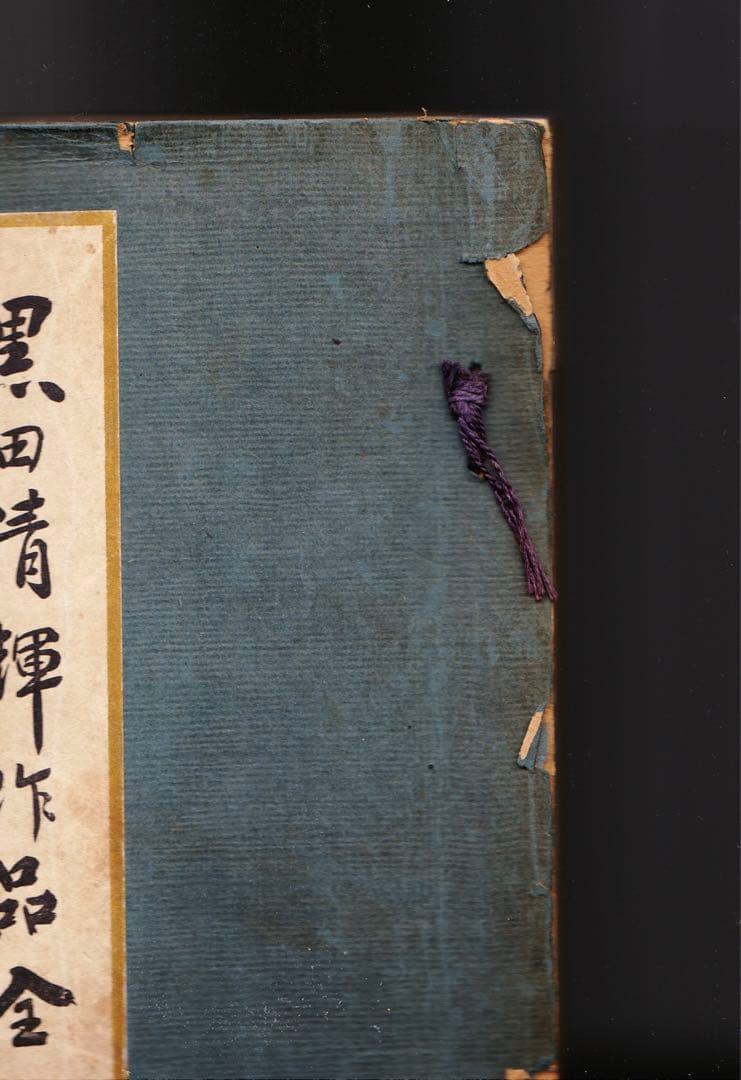 黒田清輝作品全